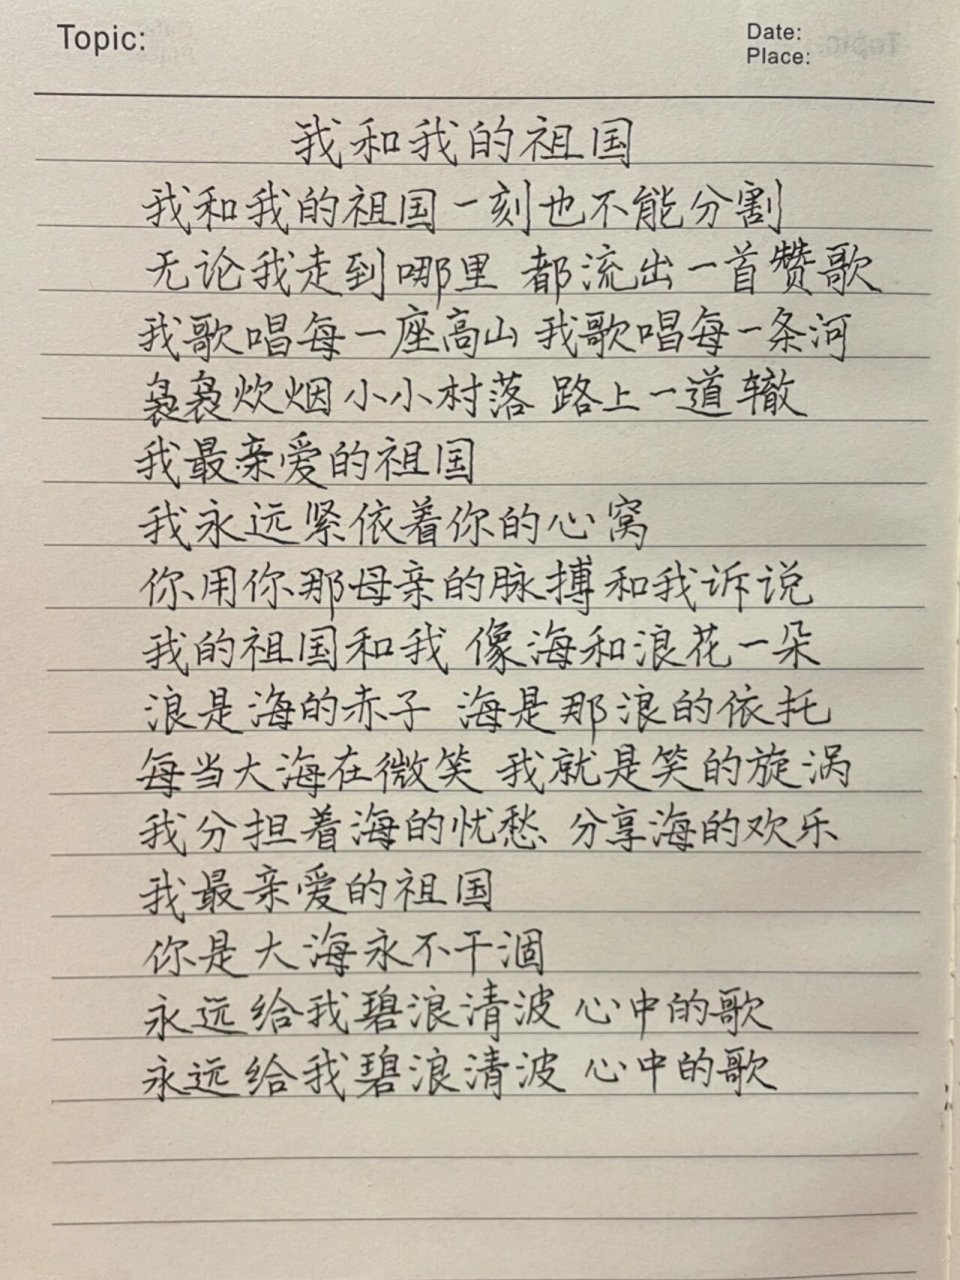 Topic:
Date:
Place:
我和我的祖国
我和我的祖国一刻也不能分割
无论我走到哪里 都流出一首赞歌
我歌唱每一座高山 我歌唱每一条河
袅袅炊烟小小村落 路上一道辙
我最亲爱的祖国
我永远紧依着你的心窝
你用你那母亲的脉搏和我诉说
我的祖国和我 像海和浪花一朵
浪是海的赤子 海是那浪的依托
每当大海在微笑 我就是笑的旋涡
我分担着海的忧愁 分享海的欢乐
我最亲爱的祖国
你是大海永不干涸
永远给我碧浪清波 心中的歌
永远给我碧浪清波 心中的歌